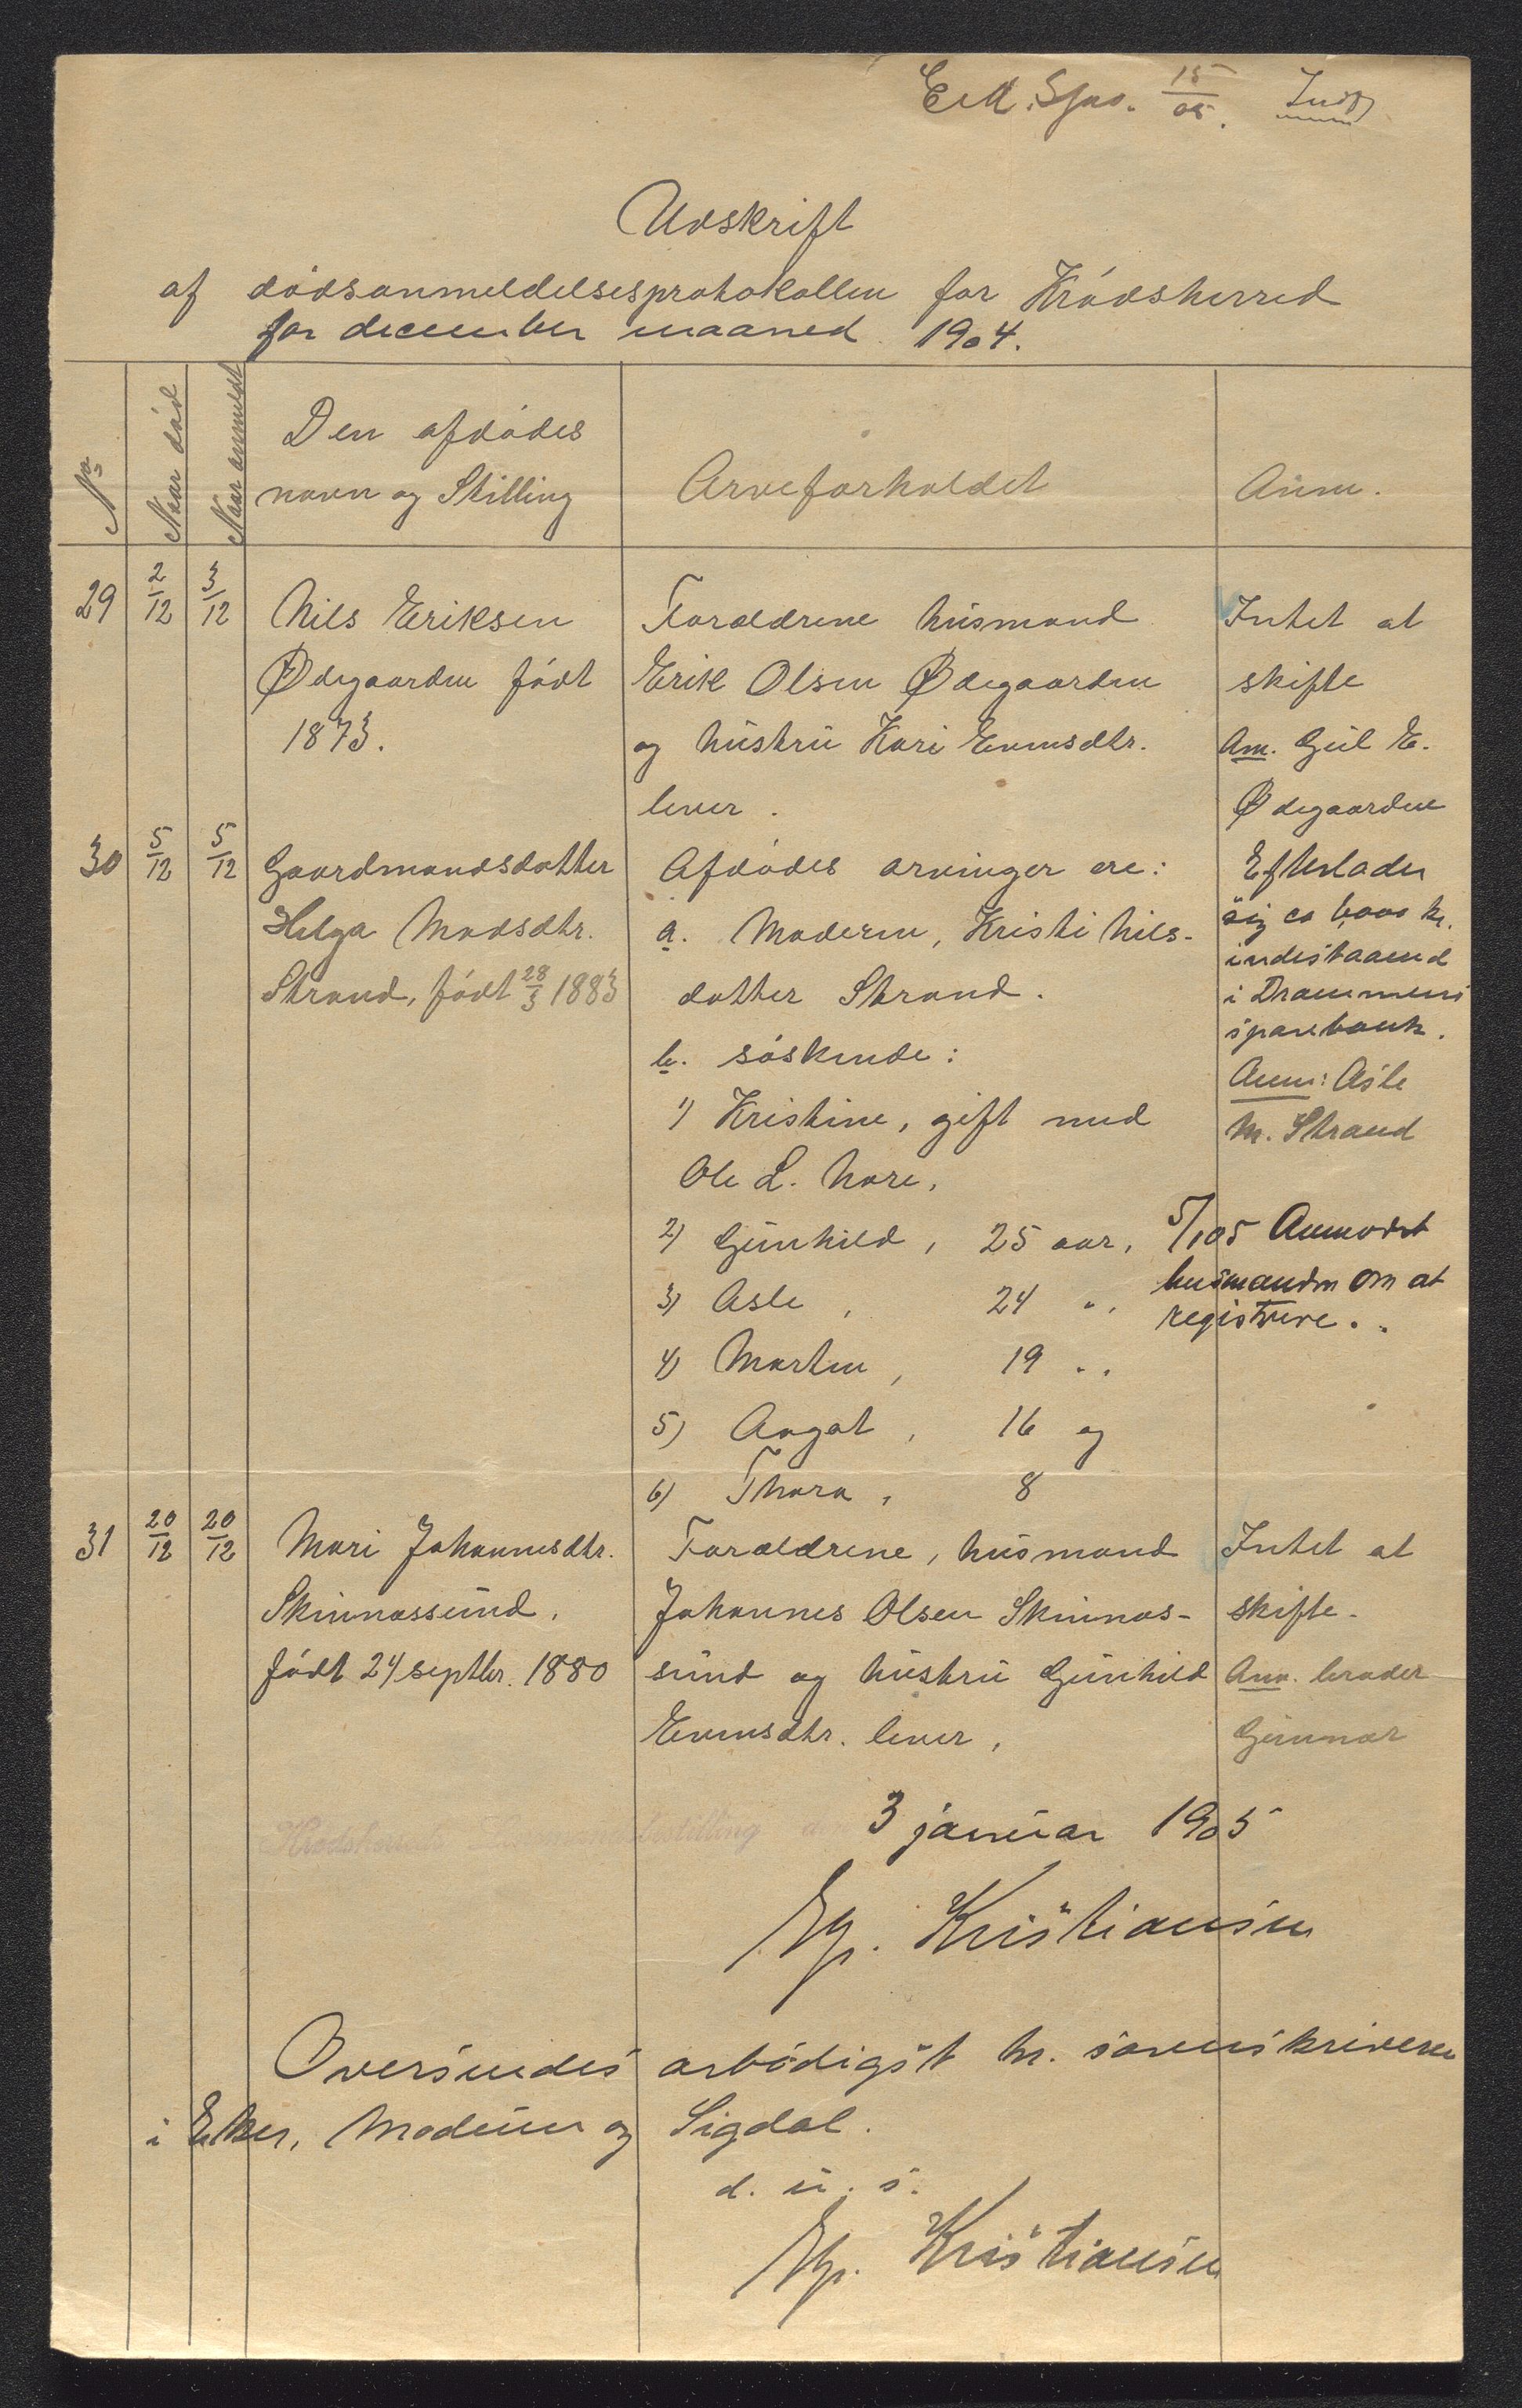 E.M. Spr. 15/05. Indf
Udskrift
af dödsanmeldelsesprotokollen for Krödsherred
for december maaned 1904.
No
Naar död
Naar anmeldt
Den afdödes
navn og Stilling
Arveforholdet
Anm.
29 2/12 3/12
Nils Eriksen
Ødegaarden födt
1873.
Forældrene husmand
Erik Olsen Ødegaarden
og hustru Kari Evensdtr.
lever.
Intet at
skifte
Am. Gul E.
Ødegaarden
30 5/12 5/12
Gaardmandsdatter
Helga Madsdtr.
Strand, födt 28/3 1883
Afdödes arvinger ere:
a. Moderen, Kristi Nils-
datter Strand.
b. söskende:
1) Kristine, gift med
Ole L. Nore,
2) Gunhild, 25 aar,
3) Asle, 24 " ,
4) Marten, 19 " ,
5) August, 16 og
6) Thora, 8
Efterlader
sig ca 6,000 kr.
indestaaend
i Drammens
sparebank.
Anm: Asle
M. Strand
5/1 05 Anmodet
lensmanden om at
registrere.
31 20/12 20/12
Mari Johannesdtr.
Skinnessund,
födt 24 septbr. 1880
Forældrene, husmand
Johannes Olsen Skinnes-
sund og hustru Gunhild
Evensdtr. lever,
Intet at
skifte.
Anm. broder
Gunnar
Krødsherred lensmandsbestilling den 3 januar 1905
Kristiansen
Oversendes ærbödigst hr. sorenskriveren
i Eker, Modum og Sigdal.
d. u. s.
Kristiansen